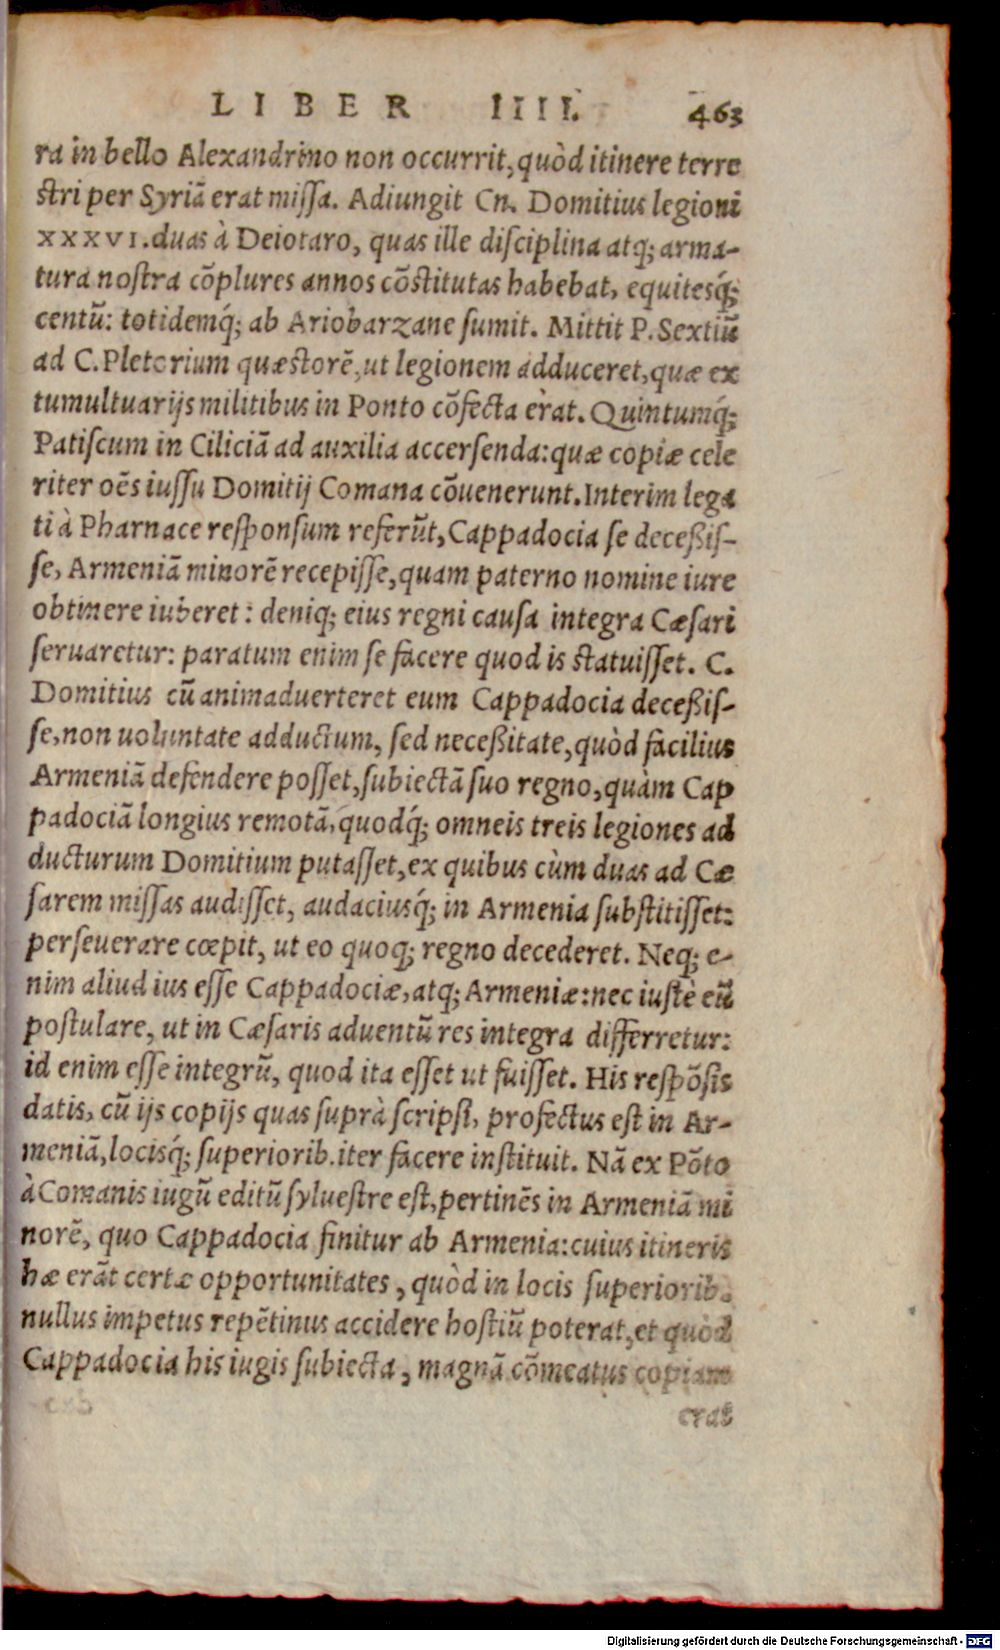 LIBER IIII. 463
ra in bello Alexandrino non occurrit, quòd itinere terre
stri per Syriā erat missa. Adiungit Cn. Domitius legioni
XXXVI. duas à Deiotaro, quas ille disciplina atq; arma-
tura nostra cōplures annos cōstitutas habebat, equitesq́;
centū: totidemq́; ab Ariobarzane sumit. Mittit P. Sextiū
ad C. Pletorium quæstorē, ut legionem adduceret, quæ ex
tumultuarijs militibus in Ponto cōfecta èrat. Quintumq́;
Patiscum in Ciliciā ad auxilia accersenda: quæ copiæ cele
riter oēs iussu Domitij Comana cōuenerunt. Interim lega
ti à Pharnace responsum referūt, Cappadocia se deceßis-
se, Armeniā minorē recepisse, quam paterno nomine iure
obtinere iuberet: deniq; eius regni causa integra Cæsari
seruaretur: paratum enim se facere quod is statuisset. C.
Domitius cū animaduerteret eum Cappadocia deceßis-
se, non uoluntate adductum, sed neceßitate, quòd facilius
Armeniā defendere posset, subiectā suo regno, quàm Cap
padociā longius remotā, quodq́; omneis treis legiones ad
ducturum Domitium putasset, ex quibus cùm duas ad Cæ
sarem missas audisset, audaciusq́; in Armenia substitisset:
perseuerare cœpit, ut eo quoq; regno decederet. Neq; e-
nim aliud ius esse Cappadociæ, atq; Armeniæ: nec iustè eū
postulare, ut in Cæsaris aduentū res integra differretur:
id enim esse integrū, quod ita esset ut fuisset. His respōsis
datis, cū ijs copijs quas suprà scripsi, profectus est in Ar-
meniā, locisq́; superiorib. iter facere instituit. Nā ex Pōto
à Comanis iugū editū syluestre est, pertinēs in Armeniā mi
norē, quo Cappadocia finitur ab Armenia: cuius itineris
hæ erāt certæ opportunitates, quòd in locis superiorib.
nullus impetus repētinus accidere hostiū poterat, et quod
Cappadocia his iugis subiecta, magnā cōmeatus copiam
erat
Digitalisierung gefördert durch die Deutsche Forschungsgemeinschaft - DFG